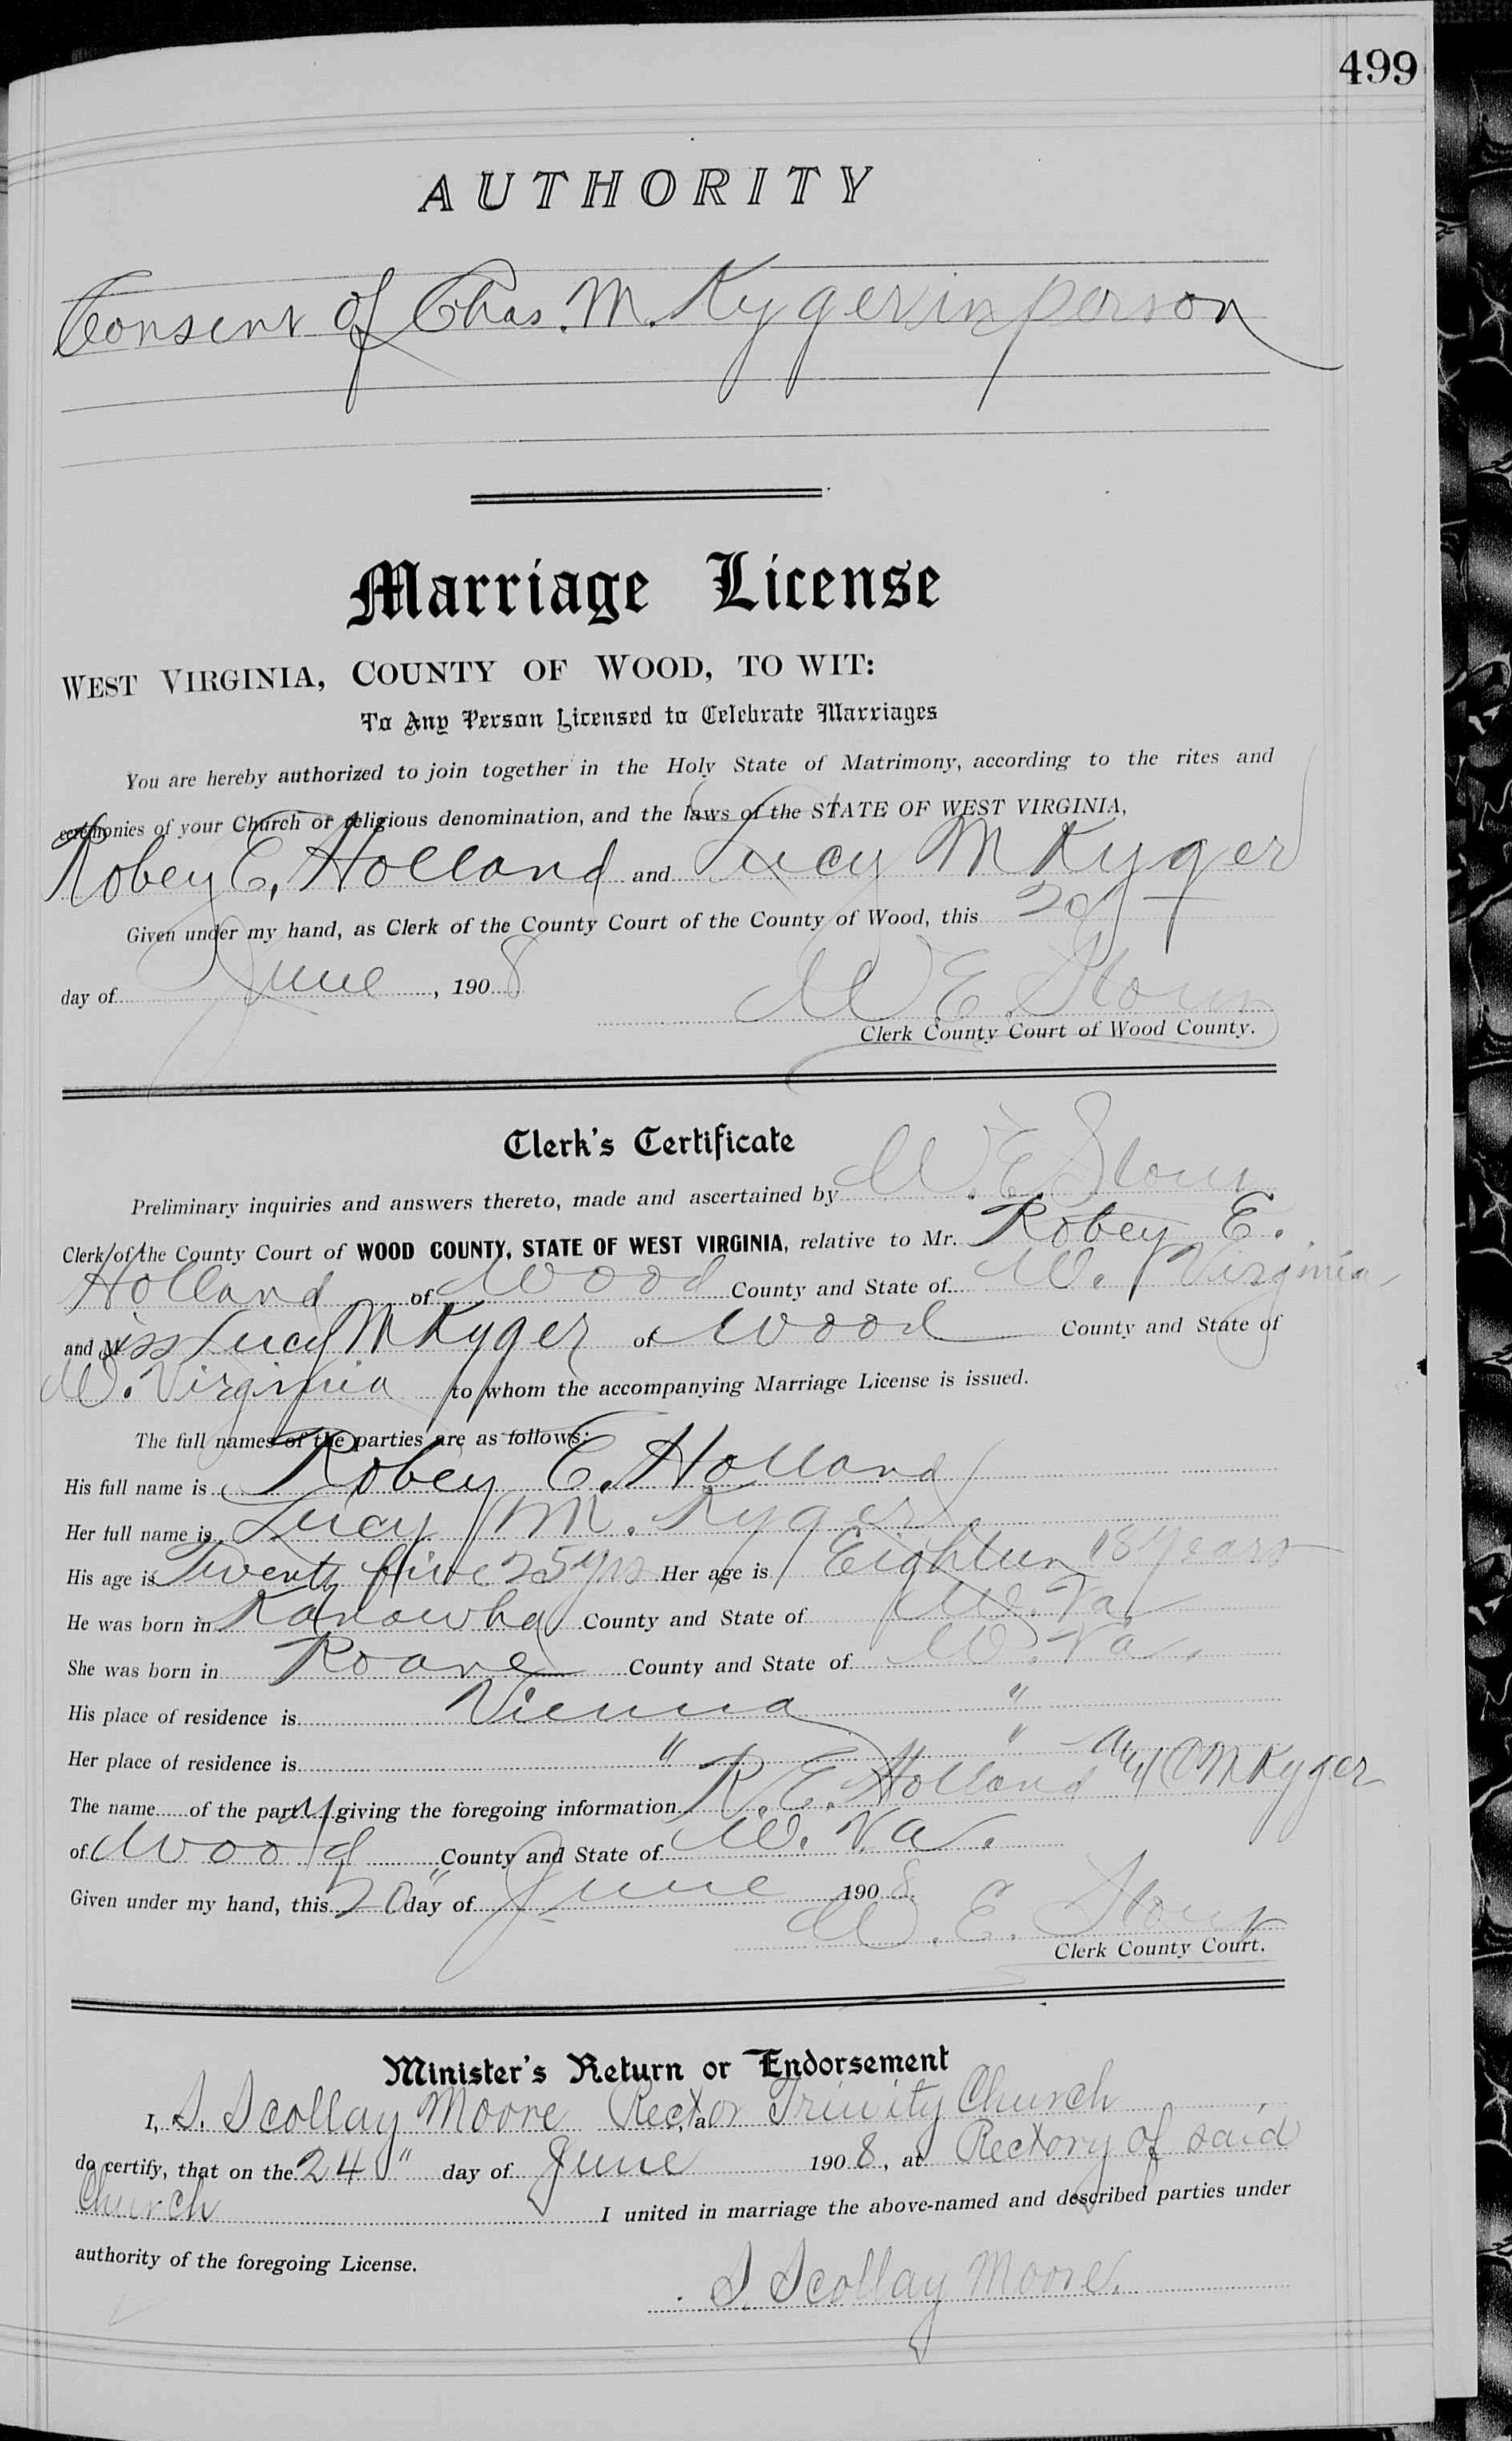 499
AUTHORITY
Consent of Chas. M. Kyger in person
Marriage License
WEST VIRGINIA, COUNTY OF WOOD, TO WIT:
To Any Person Licensed to Celebrate Marriages
You are hereby authorized to join together in the Holy State of Matrimony, according to the rites and
ceremonies of your Church or religious denomination, and the laws of the STATE OF WEST VIRGINIA,
Robey E. Holland and Lucy M Kyger
Given under my hand, as Clerk of the County Court of the County of Wood, this 20
day of June, 1908
W E Stout
Clerk County Court of Wood County.
Clerk's Certificate
Preliminary inquiries and answers thereto, made and ascertained by W. E. Stout
Clerk of the County Court of WOOD COUNTY, STATE OF WEST VIRGINIA, relative to Mr. Robey E.
Holland of Wood County and State of W. Virginia
and Miss Lucy M Kyger of Wood County and State of
W. Virginia to whom the accompanying Marriage License is issued.
The full names of the parties are as follows:
His full name is Robey E. Holland
Her full name is Lucy M. Kyger
His age is Twenty five 25 yrs Her age is Eighteen 18 years
He was born in Kanawha County and State of W. Va.
She was born in Roane County and State of W. Va.
His place of residence is Vienna "
Her place of residence is " "
The name of the party giving the foregoing information R. E. Holland and C M Kyger
of Wood County and State of W. Va.
Given under my hand, this 20" day of June 1908
W. E. Stout
Clerk County Court.
Minister's Return or Endorsement
I, S. Scollay Moore Rector, a Trinity Church
do certify, that on the 24" day of June 1908, at Rectory of said
Church I united in marriage the above-named and described parties under
authority of the foregoing License.
S. Scollay Moore.